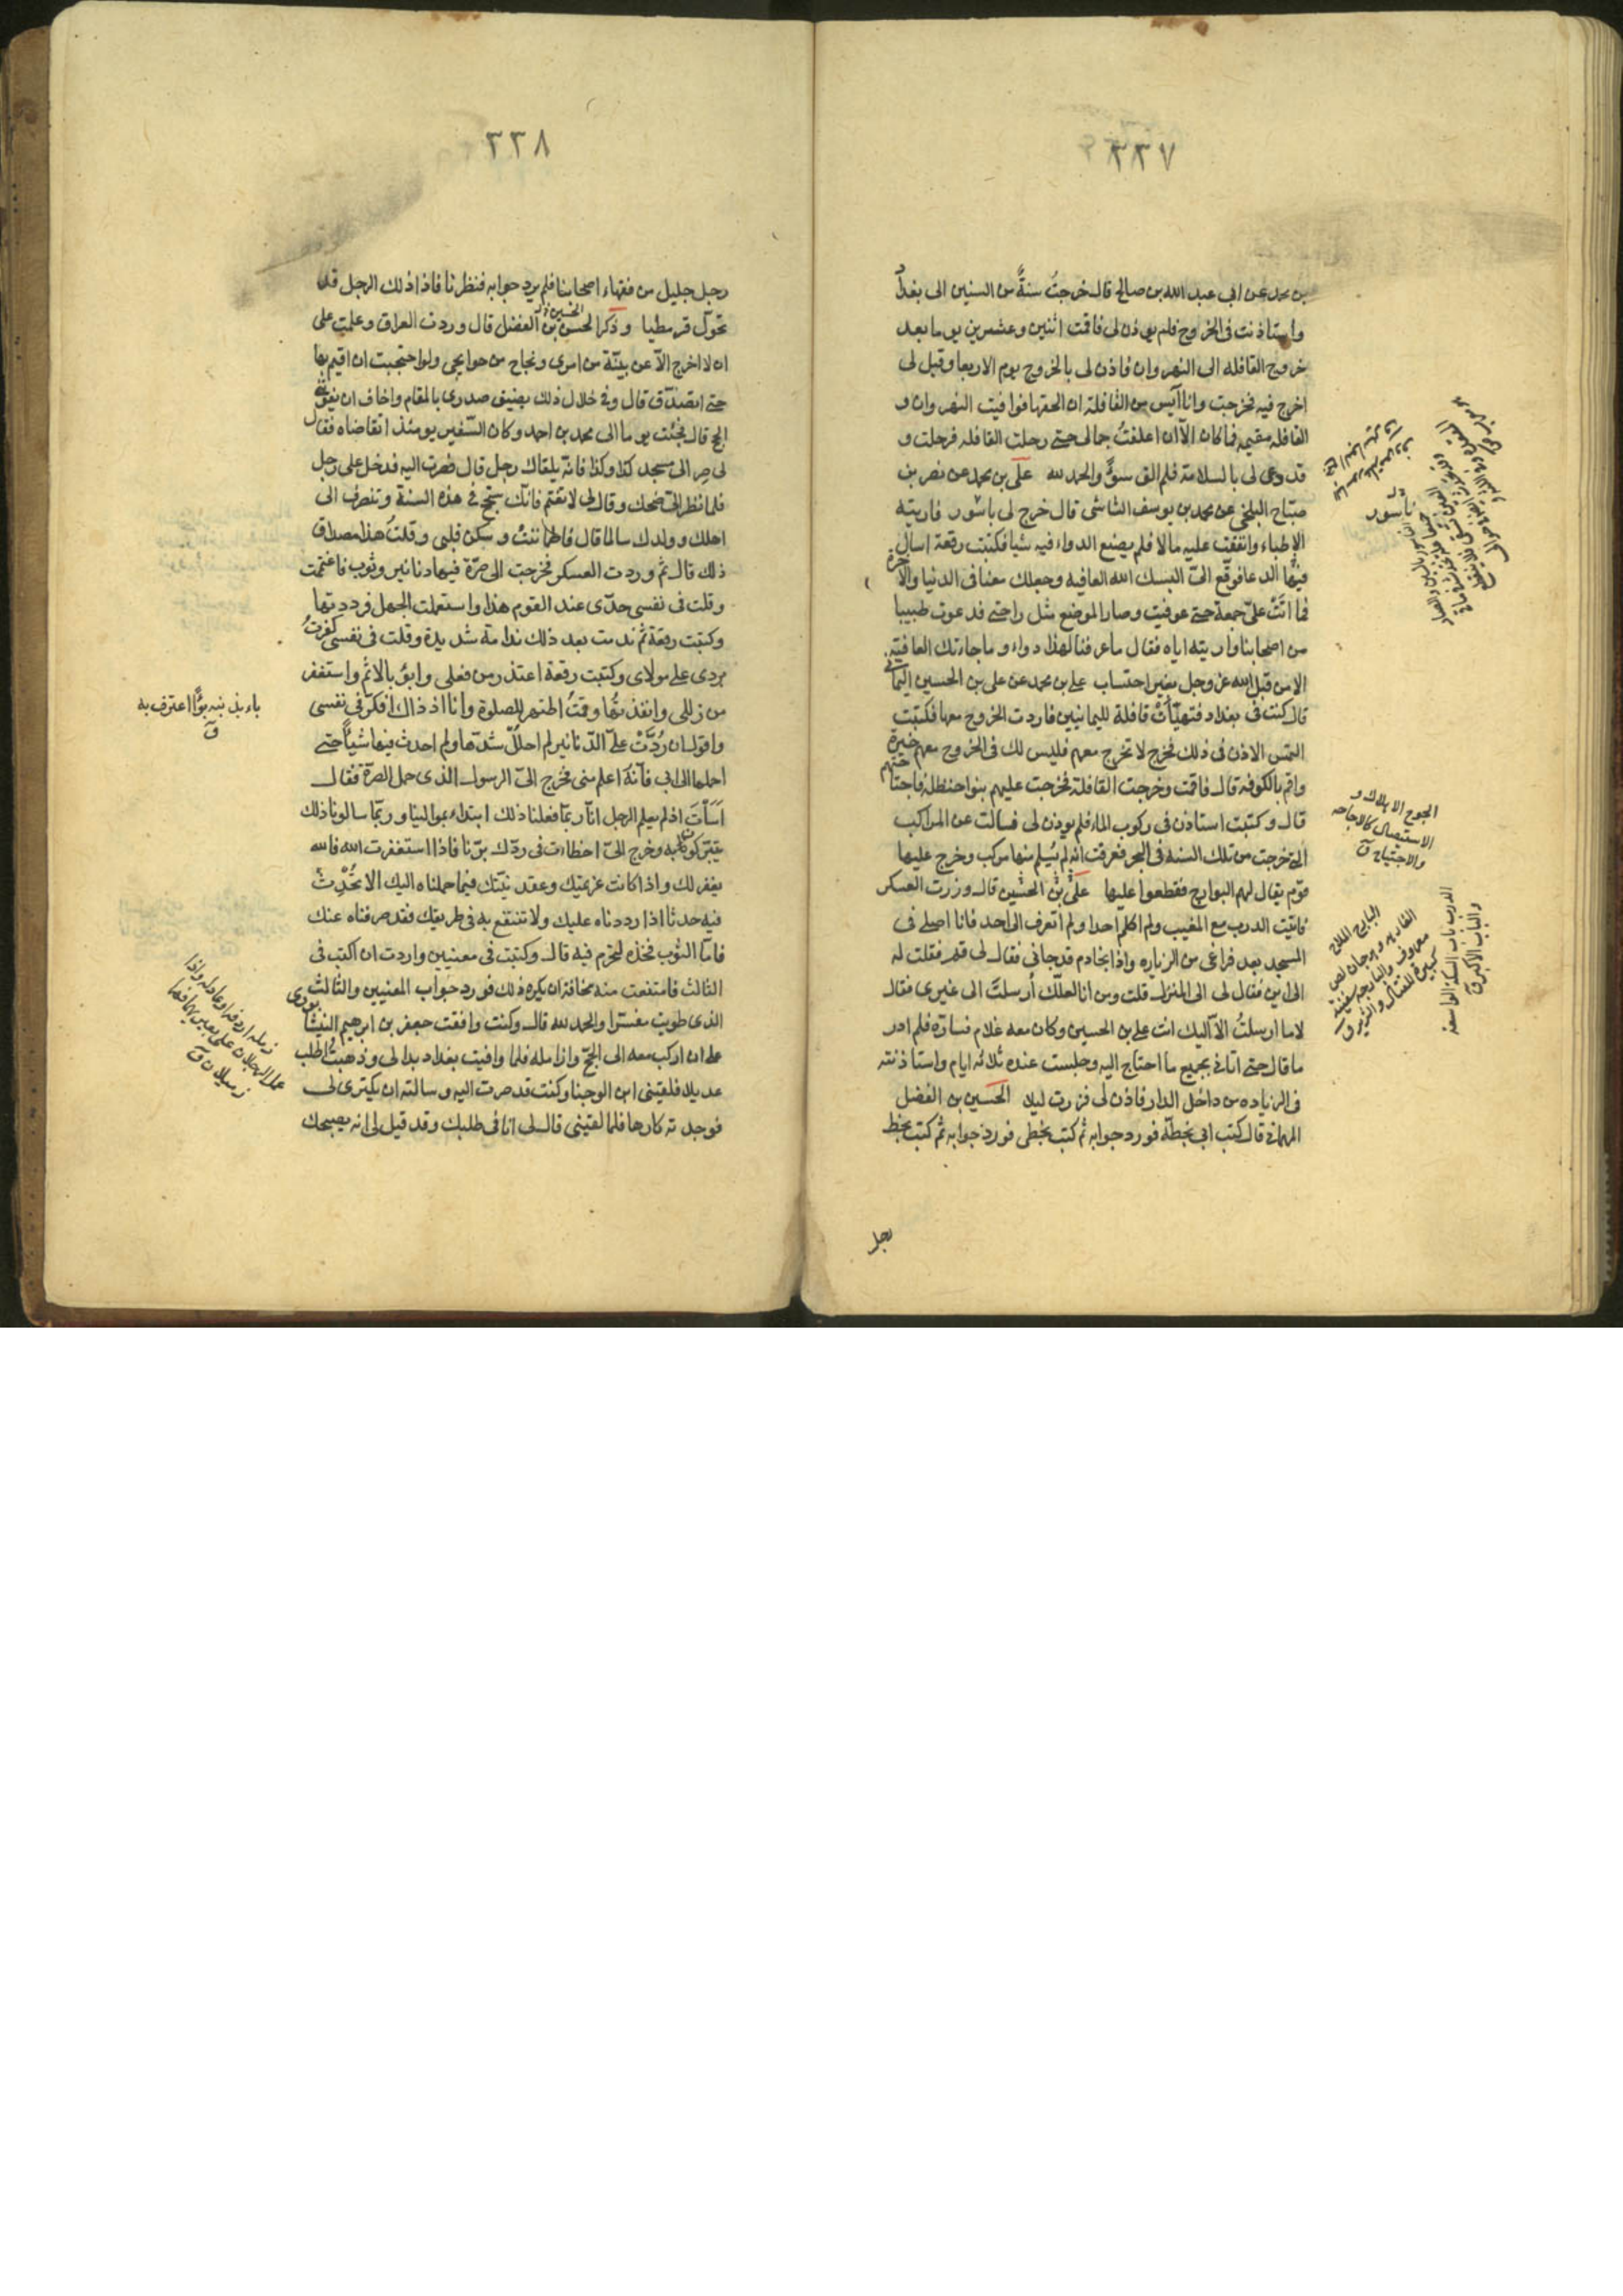 ٣٣٧
بن محمد عن ابي عبد الله بن صالح قال خرجت سنةً من السنين الى بغداد
واستاذنت فى الخروج فلم يوذن لى فاقمت اثنين وعشرين يوما بعد
خروج القافله الى النهروان فاذن لى بالخروج يوم الاربعا وقيل لى
اخرج فيه فخرجت وانا آيس من القافلة ان الحقها فوافيت النهروان و
القافله مقيمه فما كان الاّ ان اعلفتُ جمالى حتى رحلت القافله فرحلت و
قد دعى لى بالسلامة فلم الق سوءً والحمد لله على بن محمد عن نصر بن
صبّاح البلخى عن محمد بن يوسف الشاشى قال خرج لى باسور فاريته
الاطباء وانفقت عليه مالا فلم يصنع الدواء فيه شيا فكتبت رقعة اسال
فيها الدعا فوقّع الىّ البسك الله العافيه وجعلك معنا فى الدنيا والآخرة
فما اتَتْ علىّ جمعة حتى عوفيت وصار الموضع مثل راحتى فدعوت طبيبا
من اصحابنا واريته اياه فقال ما عرفنا لهذا دواء وما جاءتك العافية
الا من قبل الله عز وجل بغير احتساب على بن محمد عن على بن الحسين اليمانى
قال كنت فى بغداد فتهيّأتْ قافلة لليمانيين فاردت الخروج معها فكتبت
التمس الاذن فى ذلك فخرج لا تخرج معهم فليس لك فى الخروج معهم خيرة
واقم بالكوفه قال فاقمت وخرجت القافلة فخرجت عليهم بنو احنظله فاجتاحتهم
قال وكتبت استاذن فى ركوب الماء فلم يوذن لى فسالت عن المراكب
التى خرجت من تلك السنه فى البحر فعرفت انه لم يسلم منها مركب وخرج عليها
قوم يقال لهم البوارج فقطعوا عليها على بن الحسين قال وزرت العسكر
فاتيت الدرب مع المغيب ولم اكلم احدا ولم اتعرف الى احد فانا اصلى فى
المسجد بعد فراغى من الزياره واذا بخادم قد جانى فقال لى قم فقلت له
الى اين فقال لى الى المنزل قلت ومن انا لعلّك أرسلتَ الى غيرى فقال
لا ما ارسلتُ الاّ اليك انت على بن الحسين وكان معه غلام فسارّه فلم ادر
ما قال حتى اتانى بجميع ما احتاج اليه وجلست عنده ثلاثه ايام واستاذنته
فى الزياره من داخل الدار فاذن لى فزرت ليلا الحسين بن الفضل
الهمانى قال كتب ابى بخطّه فورد جوابه ثم كتب بخطى فورد جوابه ثم كتب بخط
رجل
ناسور
الجوح الاهلاك و
الاستيصال كالاجاحه
والاجتياح ق
الدرب باب السكة الواسعة
والباب الأكبر ق
٣٣٨
رجل جليل من فقهاء اصحابنا فلم يرد جوابه فنظرنا فاذا ذلك الرجل قد
تحوّل قرمطيا وذكر الحسن بن الفضل قال وردت العراق وعلمت على
ان لا اخرج الاّ عن بينّة من امرى ونجاح من حوايجى ولو احتجبت ان اقيم بها
حتى اتصدّق قال وفى خلال ذلك يضيق صدرى بالمقام واخاف ان يفوتنى
الحج قال فجئت يوما الى محمد بن احمد وكان السّفير يومئذ اتقاضاه فقال
لى صِر الى مسجد كذا وكذا فانّه يلقاك رجل قال فصرت اليه فدخل على رجل
فلما نظر الىّ ضحك وقال لى لا تغتم فانّك ستحج فى هذه السنة وتنصرف الى
اهلك وولدك سالما قال فاطماننتُ وسكن قلبى وقلتُ هذا مصداق
ذلك قال ثم وردت العسكر فخرجت الى صرّة فيها دنانير وثوب فاغتممت
وقلت فى نفسى جدّى عند القوم هذا واستعملت الجهل فرددتها
وكتبت رقعة ثم ندمت بعد ذلك ندامة شديدة وقلت فى نفسى كفرتُ
بردى على مولاى وكتبت رقعة اعتذر من فعلى وابوُ بالاثم واستغفر
من زللى وانفذتها وقمتُ اطهر للصلوة وانا اذ ذاك افكر فى نفسى
واقول ان رُدَّتْ علىّ الدّنانير لم احلل شدّها ولم احدث فيها شيأً حتى
احملها الى ابى فانّه اعلم منى فخرج الىّ الرسول الذى حمل الصرّة فقال
اَسَأتَ اذ لم يعلم الرجل انّا ربّما فعلنا ذلك ابتداء بموالينا وربّما سالونا ذلك
يتبرّكون به وخرج الىّ اخطات فى ردّك برّنا فاذا استغفرت الله فالله
يغفر لك واذا كانت عزيمتك وعقد نيّتك فيما حملناه اليك الا تُحْدِثْ
فيه حدثا اذا رددناه عليك ولا تنتفع به فى طريقك فقد صرفناه عنك
فامّا الثوب فخذه لتحرم فيه قال وكتبت فى معنيين واردت ان اكتب فى
الثالث فامتنعت منه مخافة ان يكره ذلك فورد جواب المعنيين والثالث
الذى طويت مفسّرا والحمد لله قال وكنت وافقت جعفر بن ابرهيم النيشابورى
على ان اركب معه الى الحجّ وازامله فلما وافيت بغداد بدا لى وذهبتُ اطلب
عديلا فلقينى ابن الوجنا وكنت قد صرت اليه وسالته ان يكترى لى
فوجدته كارها فلما لقينى قال لى انا فى طلبك وقد قيل لى انه يصحبك
باء بذنبه بوًأ اعترف به
ق